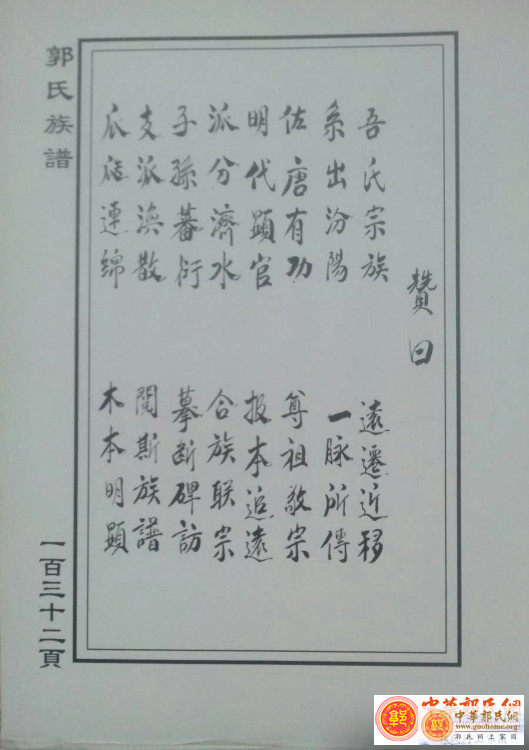 贊曰
吾氏宗族 遠遷近移
系出汾陽 一脉所傳
佐唐有功 尊祖敬宗
明代顕官 报本追遠
派分濟水 合族联宗
子孫蕃衍 摹断碑訪
支派渙散 閱斯族譜
瓜瓞連綿 木本明顕
郭氏族譜
一百三十二頁
中華郭氏網
中華郭氏網
www.guohome.org
郭氏網上家園